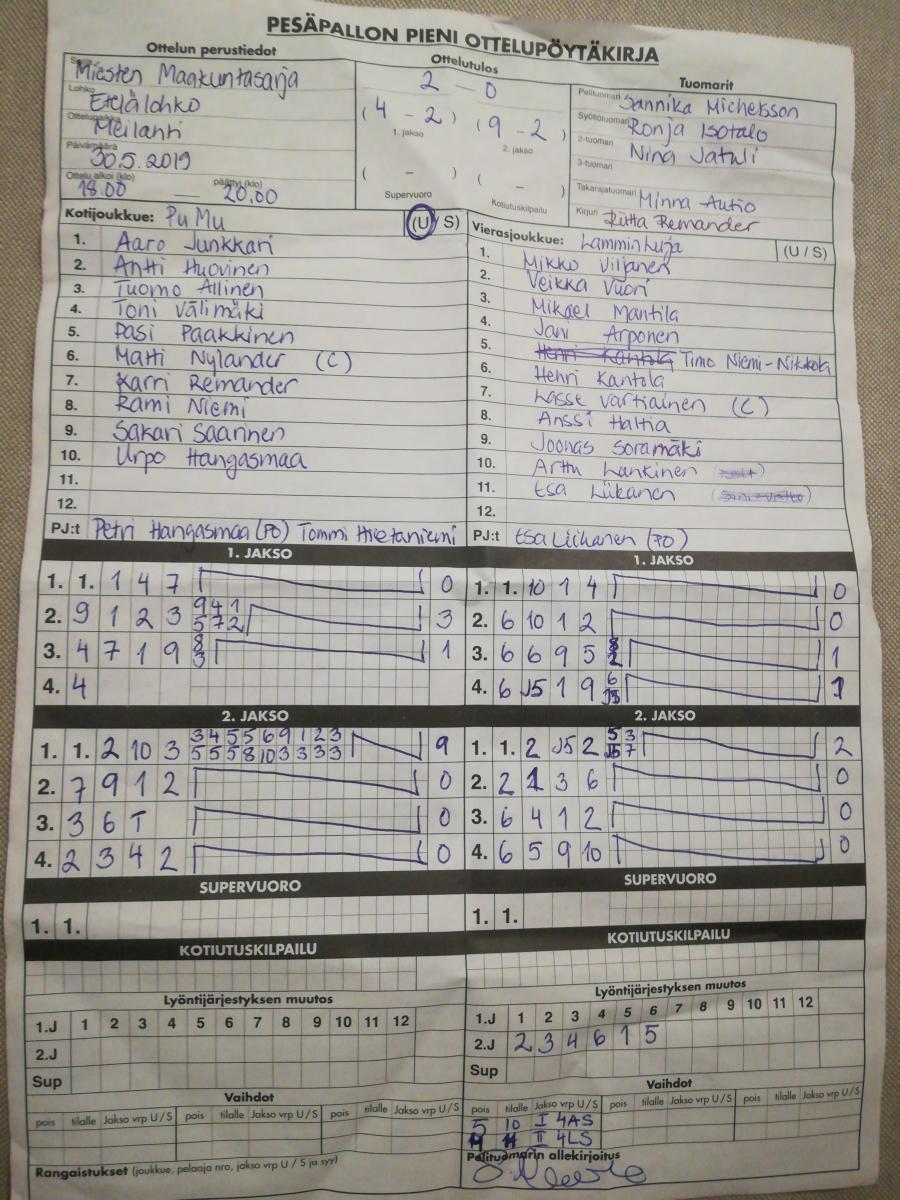 PESÄPALLON PIENI OTTELUPÖYTÄKIRJA
Ottelun perustiedot
Miesten Maakuntasarja
Lohko
Etelälohko
Ottelupaikka
Meilahti
Päivämäärä
30.5.2019
Ottelu alkoi (klo) päättyi (klo)
18.00 — 20.00
Ottelutulos
2 — 0
( 4 - 2 ) ( 9 - 2 )
1. jakso 2. jakso
( - ) ( - )
Supervuoro Kotiutuskilpailu
Tuomarit
Pelituomari Sannika Michelsson
Syöttötuomari Ronja Isotalo
2-tuomari Nina Jatuli
3-tuomari
Takarajatuomari Minna Autio
Kirjuri Riitta Remander
Kotijoukkue: PuMu (U / S)
1. Aaro Junkkari
2. Antti Huovinen
3. Tuomo Allinen
4. Toni Välimäki
5. Pasi Paakkinen
6. Matti Nylander (C)
7. Karri Remander
8. Rami Niemi
9. Sakari Saarinen
10. Urpo Hangasmaa
11.
12.
PJ:t Petri Hangasmaa (PO) Tommi Hietaniemi
Vierasjoukkue: Lamminkuja (U / S)
1. Mikko Viljanen
2. Veikka Vuori
3. Mikael Mantila
4. Jani Arponen
5. Henri Kantola Timo Niemi-Nikkola
6. Henri Kantola
7. Lasse Vartiainen (C)
8. Anssi Haltia
9. Joonas Soramäki
10. Arttu Lankinen
11. Esa Liikanen
12.
PJ:t Esa Liikanen (PO)
1. JAKSO
1. 1. 1 4 7 0
2. 9 1 2 3 9 4 1 3
5 7 2
3. 4 7 1 9 8 1
3
4. 4
2. JAKSO
1. 1. 2 10 3 3 4 5 5 6 9 1 2 3 9
5 5 5 8 10 3 3 3 3
2. 7 9 1 2 0
3. 3 6 T 0
4. 2 3 4 2 0
SUPERVUORO
1. 1.
KOTIUTUSKILPAILU
Lyöntijärjestyksen muutos
1.J 1 2 3 4 5 6 7 8 9 10 11 12
2.J
Sup
Vaihdot
pois tilalle Jakso vrp U / S pois tilalle Jakso vrp U / S pois tilalle Jakso vrp U / S
Rangaistukset (joukkue, pelaaja nro, jakso vrp U / S ja syy)
1. JAKSO
1. 1. 10 1 4 0
2. 6 10 1 2 0
3. 6 6 9 5 1
4. 6 J5 1 9 6 1
2. JAKSO
1. 1. 2 J5 2 5 3 2
7
2. 2 1 3 6 0
3. 6 4 1 2 0
4. 6 5 9 10 0
SUPERVUORO
1. 1.
KOTIUTUSKILPAILU
Lyöntijärjestyksen muutos
1.J 1 2 3 4 5 6 7 8 9 10 11 12
2.J 2 3 4 6 1 5
Sup
Vaihdot
pois tilalle Jakso vrp U / S pois tilalle Jakso vrp U / S pois tilalle Jakso vrp U / S
5 10 I 4AS
II 4LS
Pelituomarin allekirjoitus